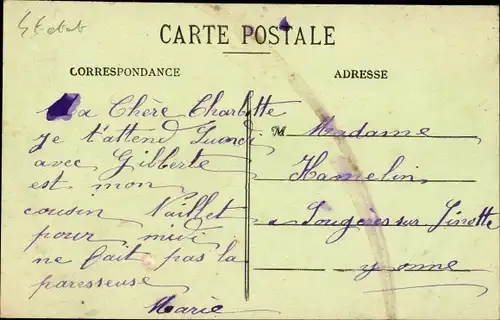 CARTE POSTALE
CORRESPONDANCE
Ma Chère Charlotte
je t'attend
avec Gilberte
est mon
cousin Vaillet
pour midi
ne fait pas la
paresseuse
Marie
ADRESSE
M Madame
Hamelin
Lougères sur Finotte
yonne